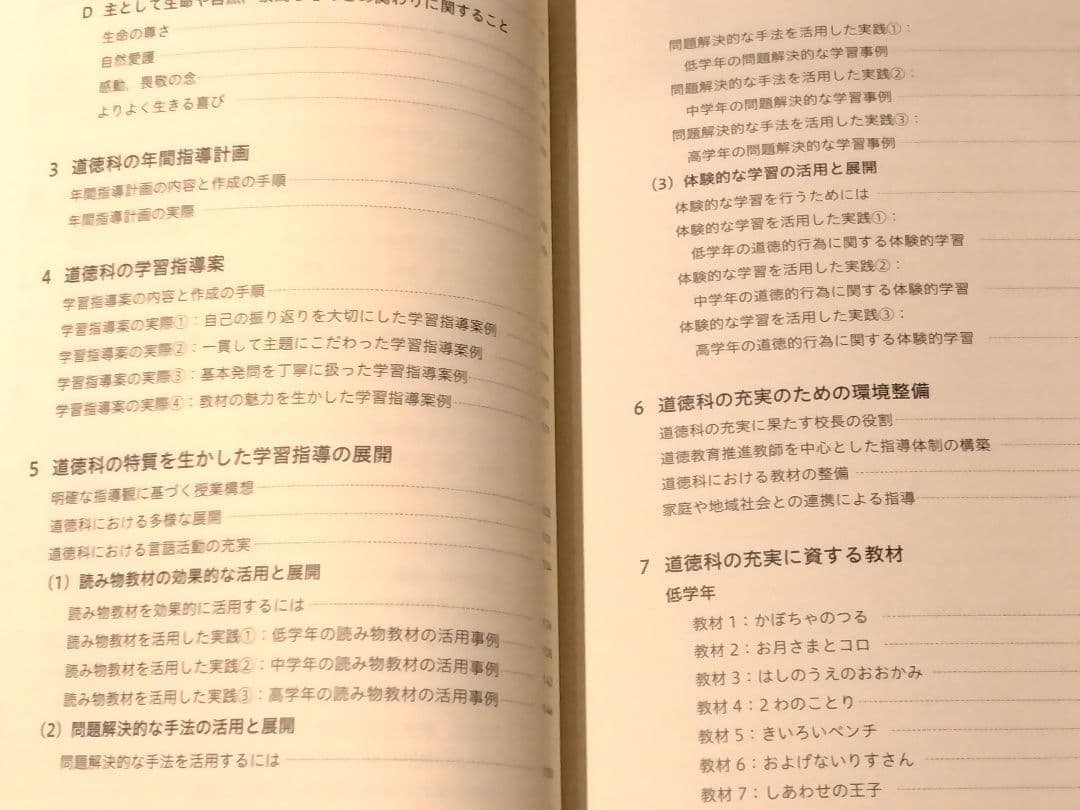 D 主として生命や自然,
関わりに関すること
生命の尊さ
自然愛護
感動,畏敬の念
よりよく生きる喜び
3 道徳科の年間指導計画
年間指導計画の内容と作成の手順
年間指導計画の実際
4 道徳科の学習指導案
学習指導案の内容と作成の手順
学習指導案の実際①:自己の振り返りを大切にした学習指導案例
学習指導案の実際②:一貫して主題にこだわった学習指導案例
学習指導案の実際③:基本発問を丁寧に扱った学習指導案例
学習指導案の実際④:教材の魅力を生かした学習指導案例
5 道徳科の特質を生かした学習指導の展開
明確な指導観に基づく授業構想
道徳科における多様な展開
道徳科における言語活動の充実
(1) 読み物教材の効果的な活用と展開
読み物教材を効果的に活用するには
読み物教材を活用した実践①:低学年の読み物教材の活用事例
読み物教材を活用した実践②:中学年の読み物教材の活用事例
読み物教材を活用した実践③:高学年の読み物教材の活用事例
(2) 問題解決的な手法の活用と展開
問題解決的な手法を活用するには
問題解決的な手法を活用した実践①:
低学年の問題解決的な学習事例
問題解決的な手法を活用した実践②:
中学年の問題解決的な学習事例
問題解決的な手法を活用した実践③:
高学年の問題解決的な学習事例
(3) 体験的な学習の活用と展開
体験的な学習を行うためには
体験的な学習を活用した実践①:
低学年の道徳的行為に関する体験的学習
体験的な学習を活用した実践②:
中学年の道徳的行為に関する体験的学習
体験的な学習を活用した実践③:
高学年の道徳的行為に関する体験的学習
6 道徳科の充実のための環境整備
道徳科の充実に果たす校長の役割
道徳教育推進教師を中心とした指導体制の構築
道徳科における教材の整備
家庭や地域社会との連携による指導
7 道徳科の充実に資する教材
低学年
教材1:かぼちゃのつる
教材2:お月さまとコロ
教材3:はしのうえのおおかみ
教材4:2わのことり
教材5:きいろいベンチ
教材6:およげないりすさん
教材7:しあわせの王子